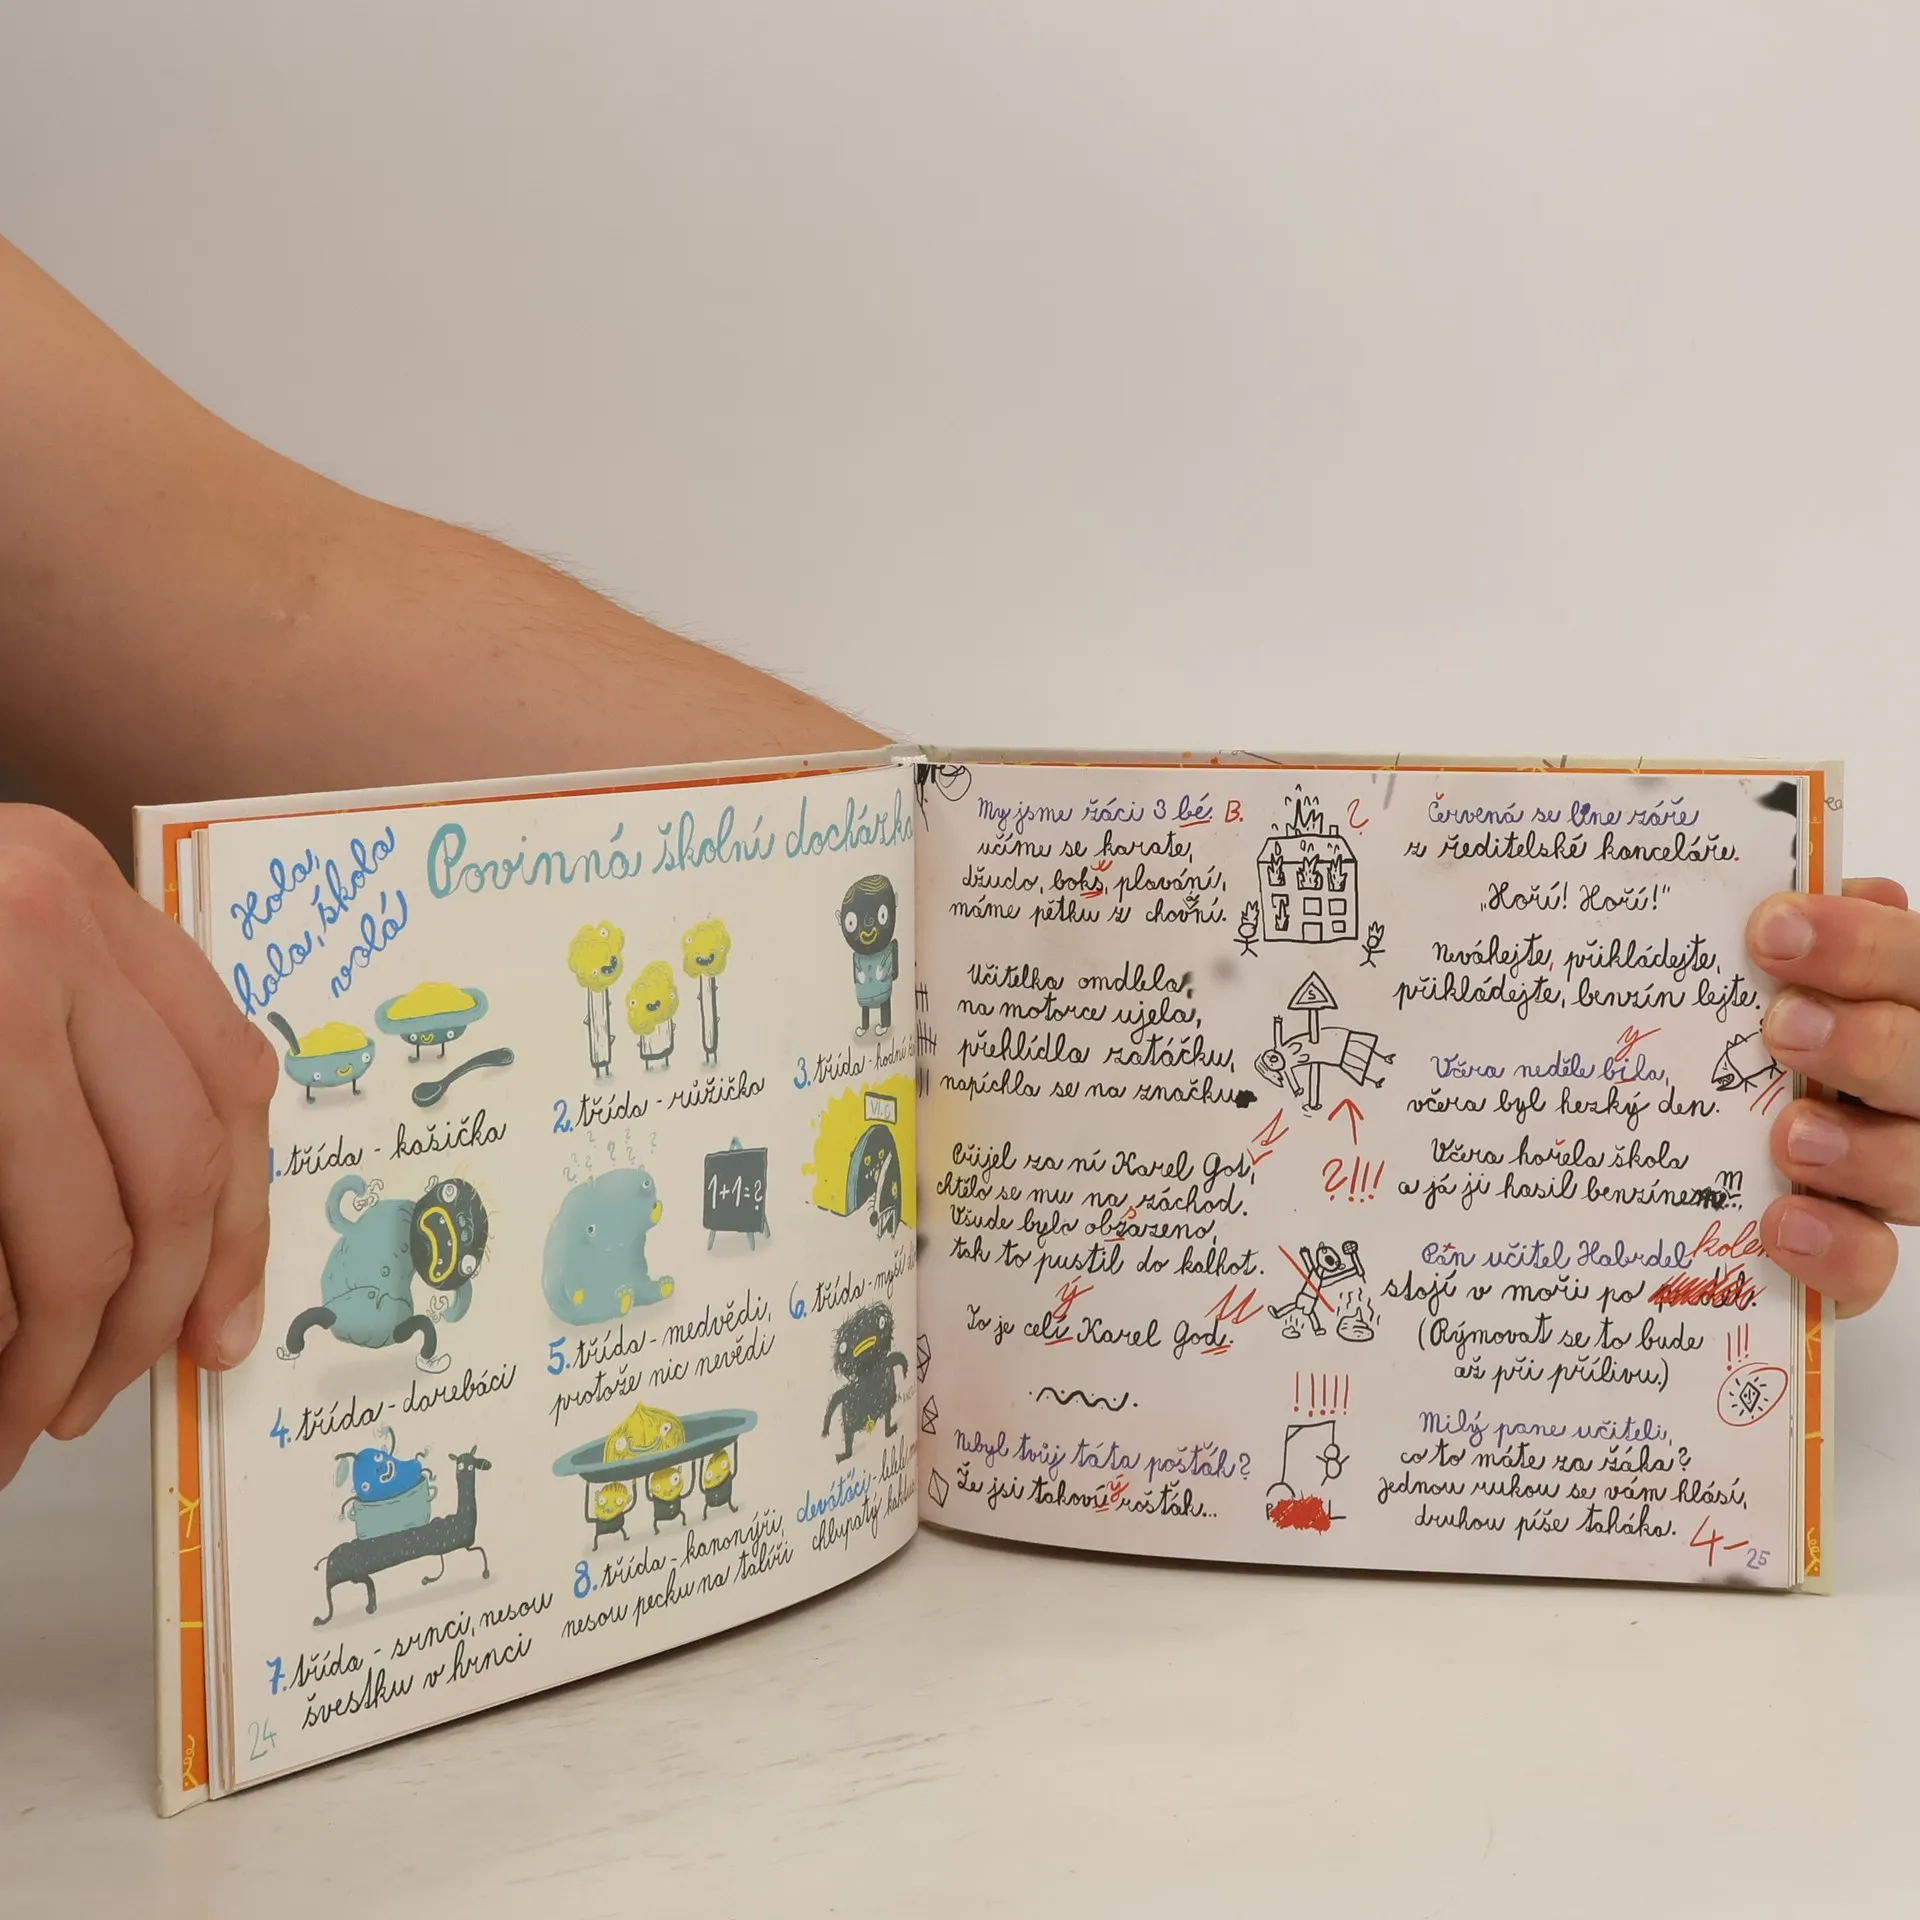 Hola,
hola, škola
volá
Povinná školní docházka
1. třída - kašička
2. třída - růžička
3. třída - hodní
4. třída - darebáci
1+1=?
5. třída - medvědi,
protože nic nevědí
6. třída - myší
7. třída - srnci, nesou
švestku v hrnci
8. třída - kanonýři,
nesou pecku na talíři
deváťáci -
chlupatý
24
My jsme žáci 3 bé. B.
učíme se karate,
džudo, boks, plavání,
x
máme pětku z chovní.
á
?
Učitelka omdlela,
na motorce ujela,
přehlídla zatáčku,
napíchla se na značku
S
?!!!
Přijel za ní Karel Got,
chtělo se mu na záchod.
Všude bylo obzazeno,
s
tak to pustil do kalhot.
To je celí Karel God.
ý
tt
Nebyl tvůj táta pošťák?
Že jsi takoví rošťák...
ý
!!!!!
Červená se line záře
z ředitelské kanceláře.
„Hoří! Hoří!"
Neváhejte, přikládejte,
přikládejte, benzín lejte.
Včera neděle bila,
y
včera byl hezký den.
Včera hořela škola
a já ji hasil benzínem
m
Pan učitel Habrdel
stojí v moři po
(Rýmovat se to bude
až při přílivu.)
!!!
Milý pane učiteli,
co to máte za žáka?
Jednou rukou se vám hlásí,
druhou píše taháka.
4-
25